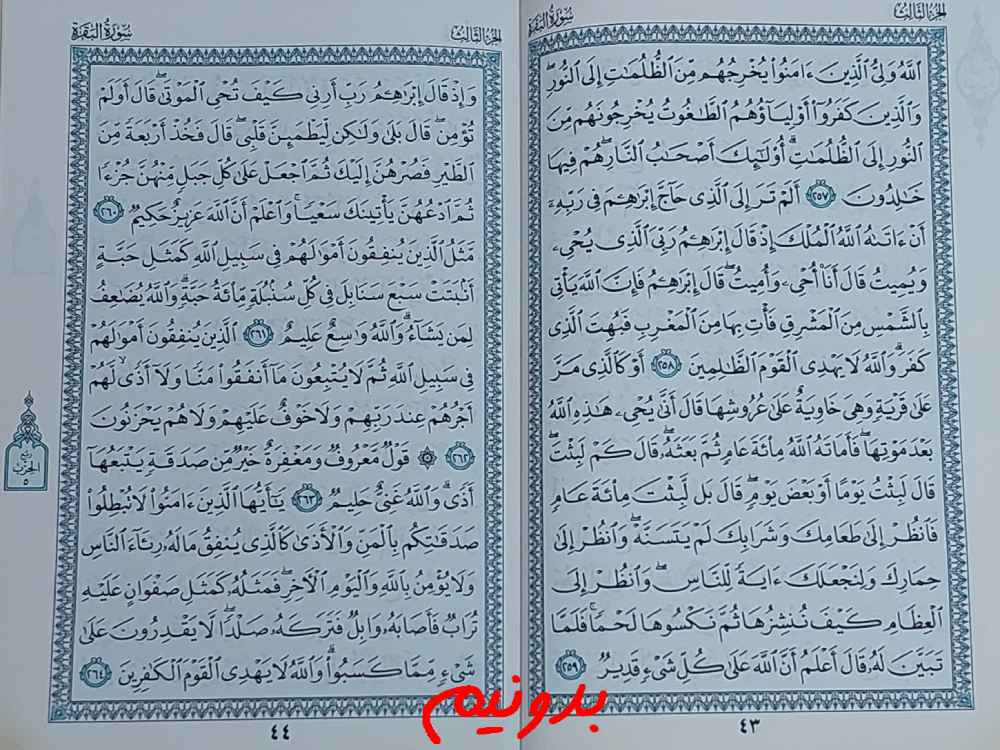 الجزء الثالث
سورة البقرة
ٱللَّهُ وَلِيُّ ٱلَّذِينَ ءَامَنُوا۟ يُخْرِجُهُم مِّنَ ٱلظُّلُمَـٰتِ إِلَى ٱلنُّورِۖ
وَٱلَّذِينَ كَفَرُوٓا۟ أَوْلِيَآؤُهُمُ ٱلطَّـٰغُوتُ يُخْرِجُونَهُم مِّنَ
ٱلنُّورِ إِلَى ٱلظُّلُمَـٰتِۗ أُو۟لَـٰٓئِكَ أَصْحَـٰبُ ٱلنَّارِۖ هُمْ فِيهَا
خَـٰلِدُونَ ٢٥٧ أَلَمْ تَرَ إِلَى ٱلَّذِى حَآجَّ إِبْرَٰهِـۧمَ فِى رَبِّهِۦٓ
أَنْ ءَاتَىٰهُ ٱللَّهُ ٱلْمُلْكَ إِذْ قَالَ إِبْرَٰهِـۧمُ رَبِّىَ ٱلَّذِى يُحْىِۦ
وَيُمِيتُ قَالَ أَنَا۠ أُحْىِۦ وَأُمِيتُۖ قَالَ إِبْرَٰهِـۧمُ فَإِنَّ ٱللَّهَ يَأْتِى
بِٱلشَّمْسِ مِنَ ٱلْمَشْرِقِ فَأْتِ بِهَا مِنَ ٱلْمَغْرِبِ فَبُهِتَ ٱلَّذِى
كَفَرَۗ وَٱللَّهُ لَا يَهْدِى ٱلْقَوْمَ ٱلظَّـٰلِمِينَ ٢٥٨ أَوْ كَٱلَّذِى مَرَّ
عَلَىٰ قَرْيَةٍ وَهِىَ خَاوِيَةٌ عَلَىٰ عُرُوشِهَا قَالَ أَنَّىٰ يُحْىِۦ هَـٰذِهِ ٱللَّهُ
بَعْدَ مَوْتِهَاۖ فَأَمَاتَهُ ٱللَّهُ مِا۟ئَةَ عَامٍ ثُمَّ بَعَثَهُۥۖ قَالَ كَمْ لَبِثْتَۖ
قَالَ لَبِثْتُ يَوْمًا أَوْ بَعْضَ يَوْمٍۖ قَالَ بَل لَّبِثْتَ مِا۟ئَةَ عَامٍ
فَٱنظُرْ إِلَىٰ طَعَامِكَ وَشَرَابِكَ لَمْ يَتَسَنَّهْۖ وَٱنظُرْ إِلَىٰ
حِمَارِكَ وَلِنَجْعَلَكَ ءَايَةً لِّلنَّاسِۖ وَٱنظُرْ إِلَى
ٱلْعِظَامِ كَيْفَ نُنشِزُهَا ثُمَّ نَكْسُوهَا لَحْمًاۚ فَلَمَّا
تَبَيَّنَ لَهُۥ قَالَ أَعْلَمُ أَنَّ ٱللَّهَ عَلَىٰ كُلِّ شَىْءٍ قَدِيرٌ ٢٥٩
٤٣
الجزء الثالث
سورة البقرة
وَإِذْ قَالَ إِبْرَٰهِـۧمُ رَبِّ أَرِنِى كَيْفَ تُحْىِ ٱلْمَوْتَىٰۖ قَالَ أَوَلَمْ
تُؤْمِنۖ قَالَ بَلَىٰ وَلَـٰكِن لِّيَطْمَئِنَّ قَلْبِىۖ قَالَ فَخُذْ أَرْبَعَةً مِّنَ
ٱلطَّيْرِ فَصُرْهُنَّ إِلَيْكَ ثُمَّ ٱجْعَلْ عَلَىٰ كُلِّ جَبَلٍ مِّنْهُنَّ جُزْءًا
ثُمَّ ٱدْعُهُنَّ يَأْتِينَكَ سَعْيًاۚ وَٱعْلَمْ أَنَّ ٱللَّهَ عَزِيزٌ حَكِيمٌ ٢٦٠
مَّثَلُ ٱلَّذِينَ يُنفِقُونَ أَمْوَٰلَهُمْ فِى سَبِيلِ ٱللَّهِ كَمَثَلِ حَبَّةٍ
أَنۢبَتَتْ سَبْعَ سَنَابِلَ فِى كُلِّ سُنۢبُلَةٍ مِّا۟ئَةُ حَبَّةٍۗ وَٱللَّهُ يُضَـٰعِفُ
لِمَن يَشَآءُۗ وَٱللَّهُ وَٰسِعٌ عَلِيمٌ ٢٦١ ٱلَّذِينَ يُنفِقُونَ أَمْوَٰلَهُمْ
فِى سَبِيلِ ٱللَّهِ ثُمَّ لَا يُتْبِعُونَ مَآ أَنفَقُوا۟ مَنًّا وَلَآ أَذًىۙ لَّهُمْ
أَجْرُهُمْ عِندَ رَبِّهِمْ وَلَا خَوْفٌ عَلَيْهِمْ وَلَا هُمْ يَحْزَنُونَ
٢٦٢ ۞ قَوْلٌ مَّعْرُوفٌ وَمَغْفِرَةٌ خَيْرٌ مِّن صَدَقَةٍ يَتْبَعُهَآ
أَذًىۗ وَٱللَّهُ غَنِىٌّ حَلِيمٌ ٢٦٣ يَـٰٓأَيُّهَا ٱلَّذِينَ ءَامَنُوا۟ لَا تُبْطِلُوا۟
صَدَقَـٰتِكُم بِٱلْمَنِّ وَٱلْأَذَىٰ كَٱلَّذِى يُنفِقُ مَالَهُۥ رِئَآءَ ٱلنَّاسِ
وَلَا يُؤْمِنُ بِٱللَّهِ وَٱلْيَوْمِ ٱلْـَٔاخِرِۖ فَمَثَلُهُۥ كَمَثَلِ صَفْوَانٍ عَلَيْهِ
تُرَابٌ فَأَصَابَهُۥ وَابِلٌ فَتَرَكَهُۥ صَلْدًاۖ لَّا يَقْدِرُونَ عَلَىٰ
شَىْءٍ مِّمَّا كَسَبُوا۟ۗ وَٱللَّهُ لَا يَهْدِى ٱلْقَوْمَ ٱلْكَـٰفِرِينَ ٢٦٤
٤٤
ربع
الحزب
٥
بدونیم